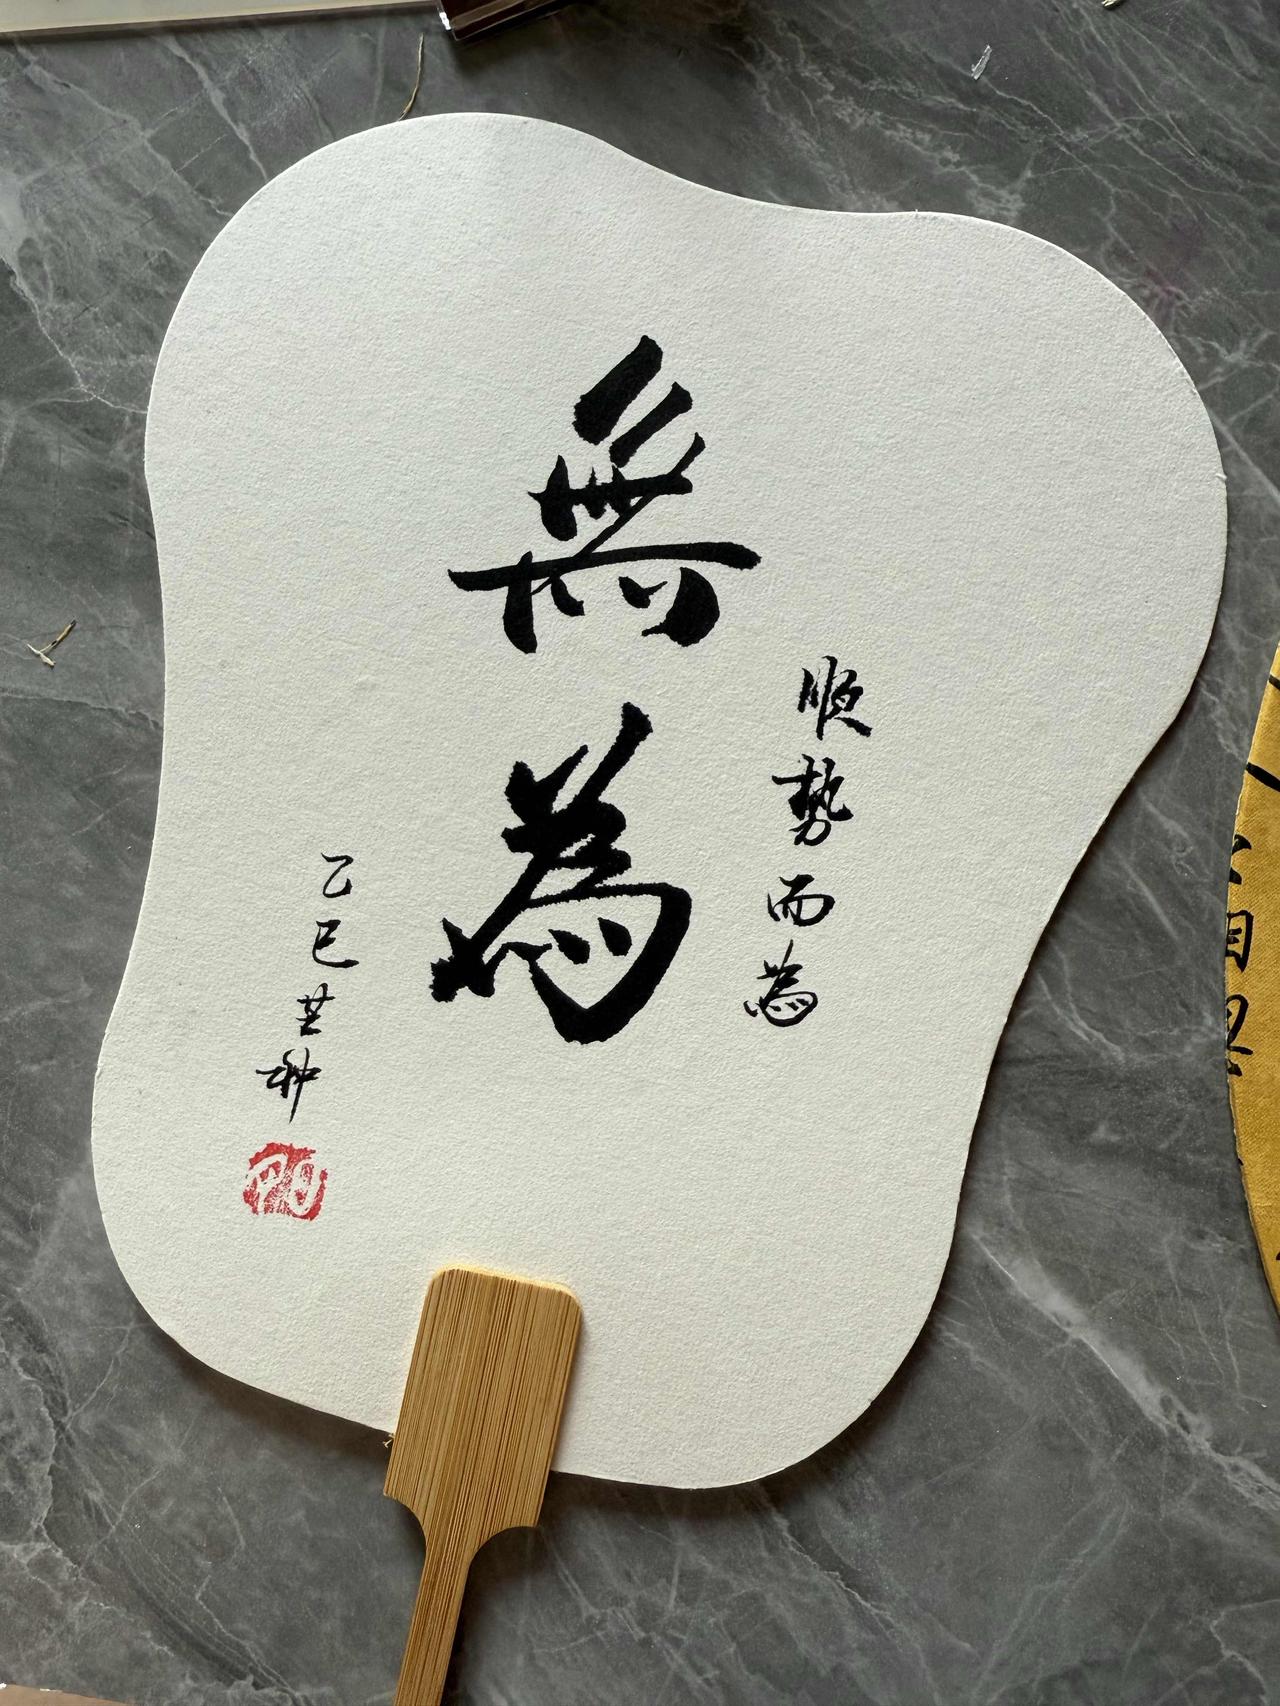 順勢而為
無為
乙巳芒种
相思